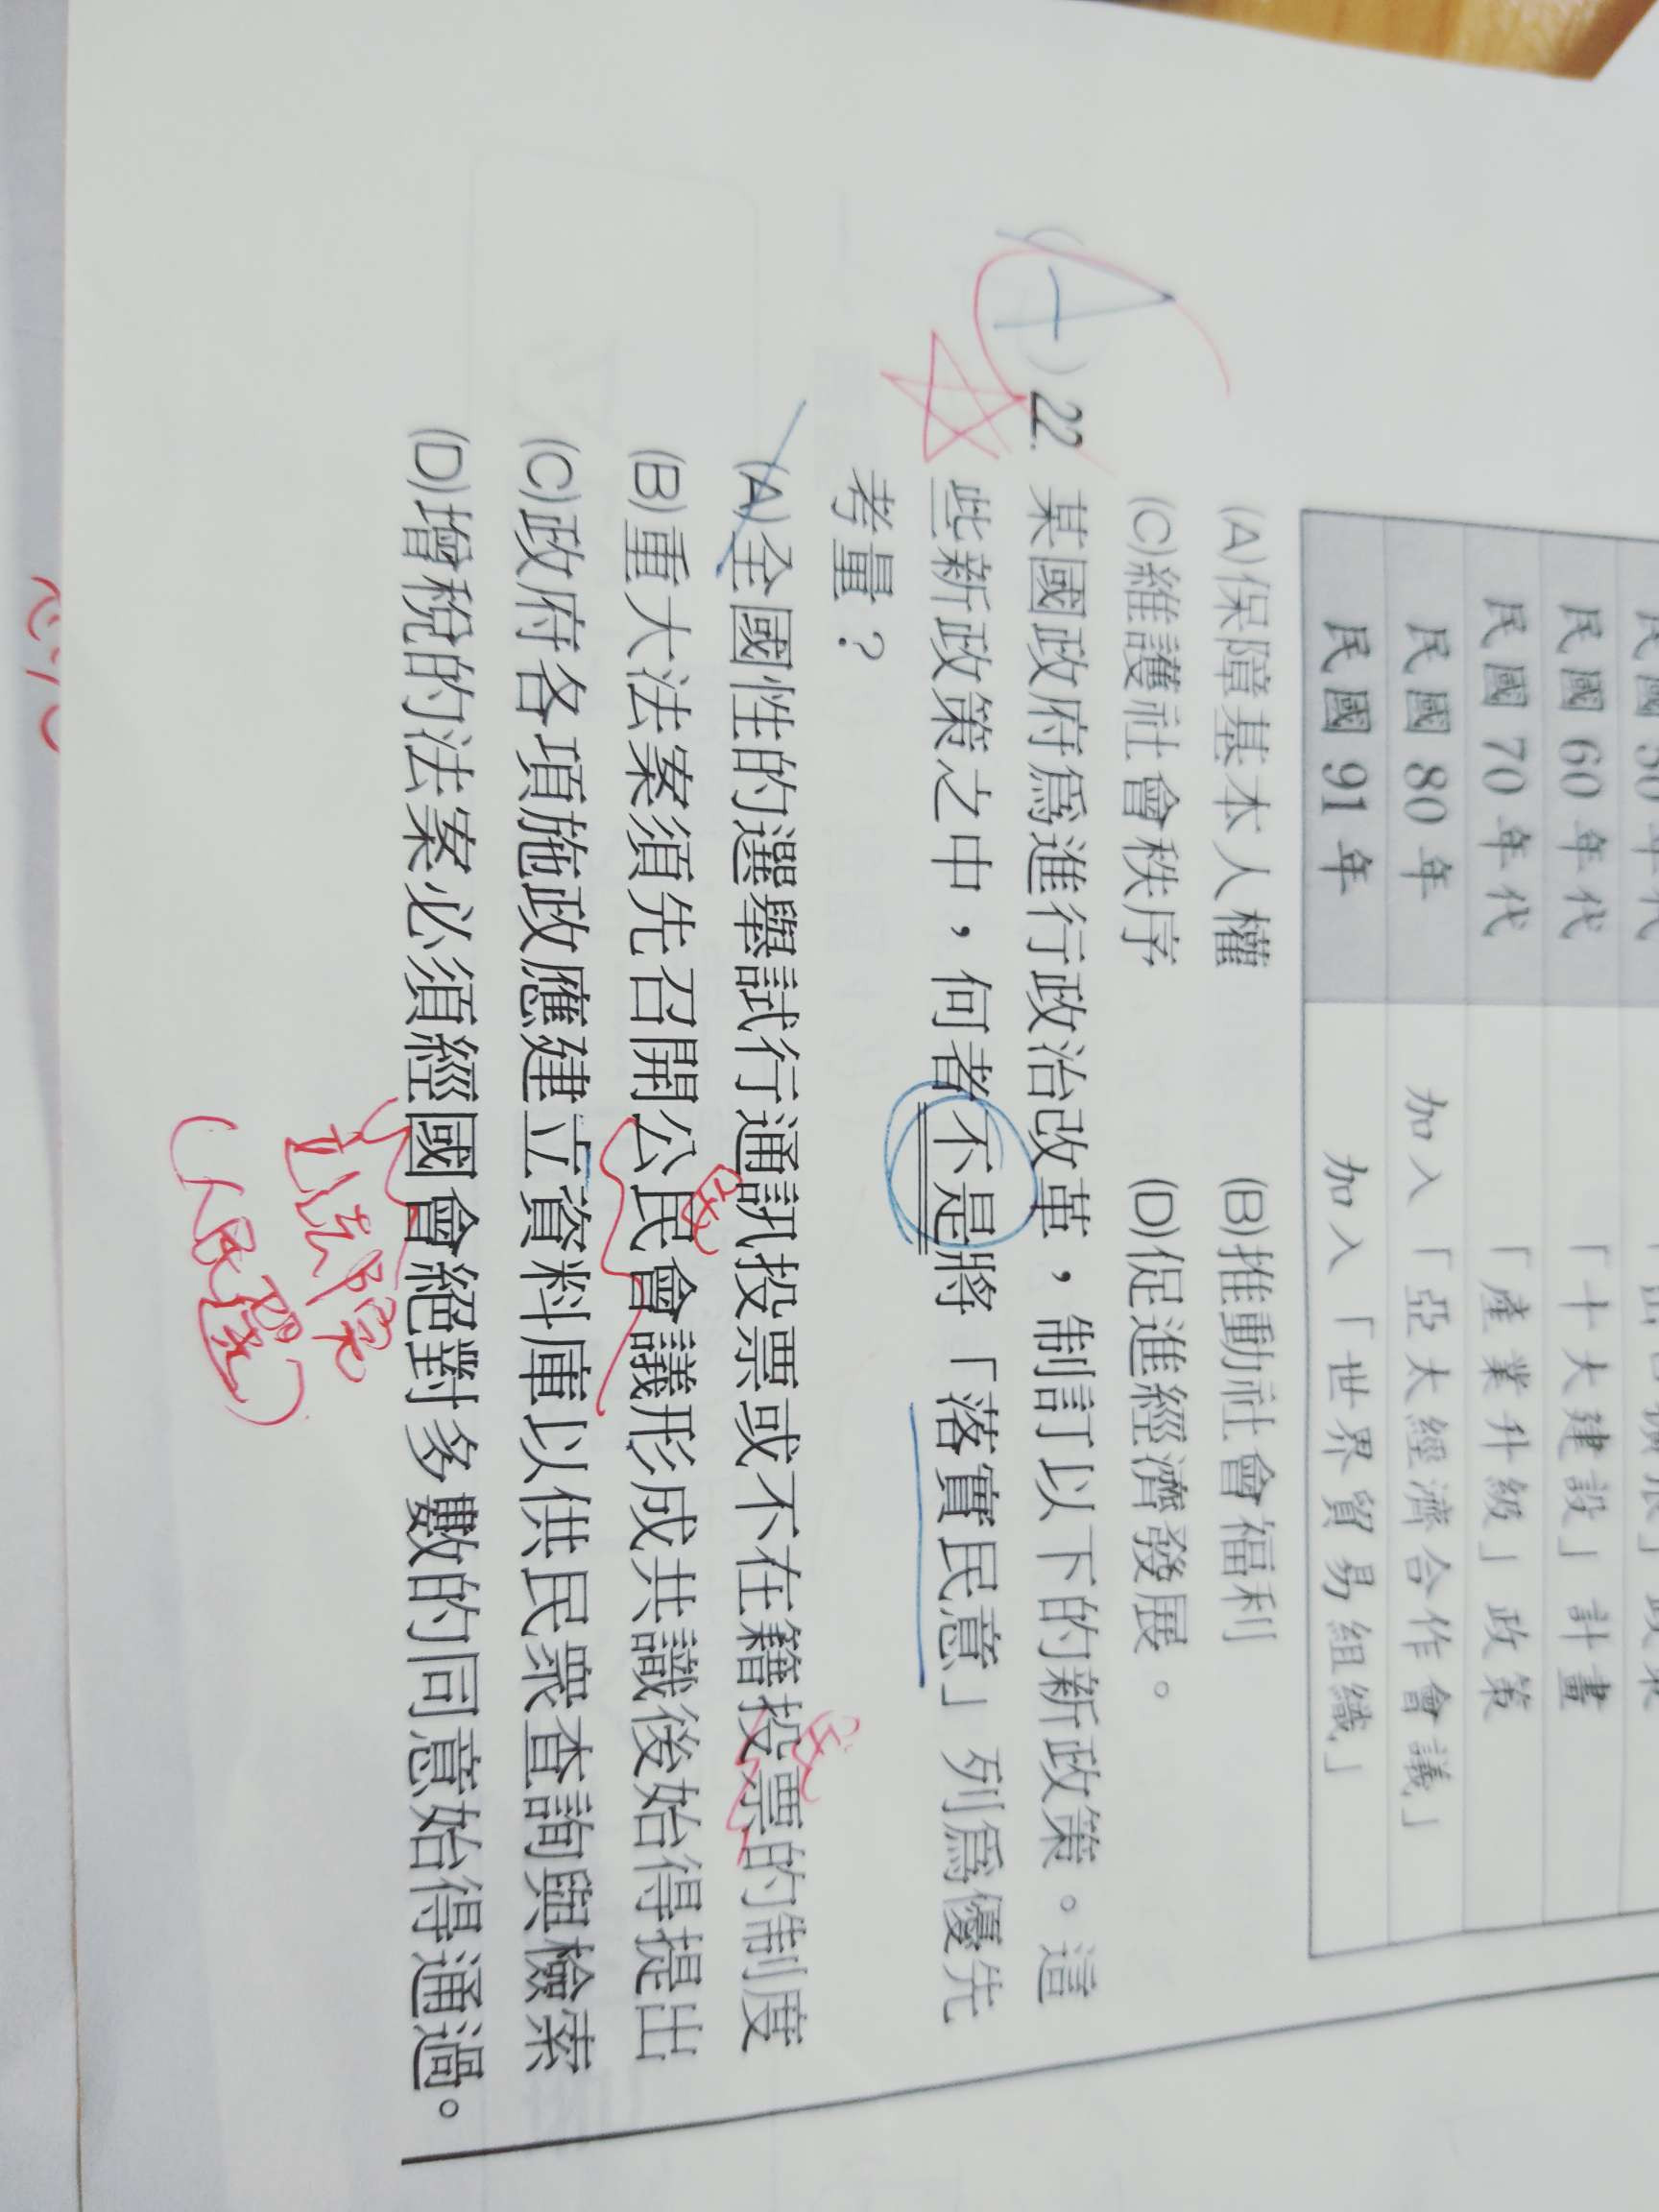 民國60年代 「十大建設」計畫
民國70年代 「產業升級」政策
民國80年 加入「亞太經濟合作會議」
民國91年 加入「世界貿易組織」
(A)保障基本人權 (B)推動社會福利
(C)維護社會秩序 (D)促進經濟發展。
22. 某國政府為進行政治改革，制訂以下的新政策。這
些新政策之中，何者不是將「落實民意」列為優先
考量？
(A)全國性的選舉試行通訊投票或不在籍投票的制度
(B)重大法案須先召開公民會議形成共識後始得提出
(C)政府各項施政應建立資料庫以供民眾查詢與檢索
(D)增稅的法案必須經國會絕對多數的同意始得通過。
立法院
(人民選)